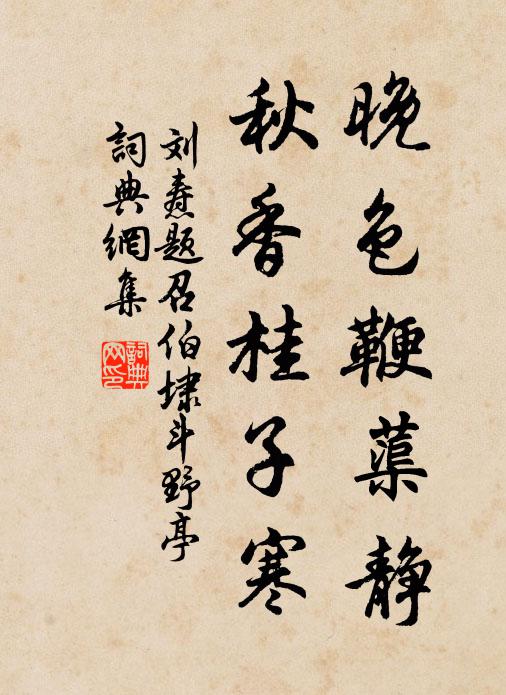 晚色鞭蕖静
秋香桂子寒
刘焘题召伯埭斗野亭
詞典網集
詞典网印